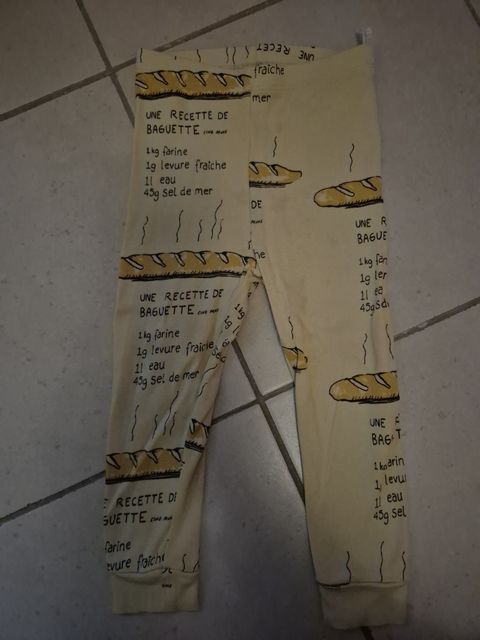 UNE RECET
fraîche
mer
UNE RECETTE DE
BAGUETTE
1kg farine
1g levure fraîche
1l eau
45g sel de mer
DE
he
UNE R
BAGUE
1kg far
1g le
1l ea
45g sd
UNE RECETTE DE
BAGUETTE
1kg farine
1g levure fraîche
1l eau
45g sel de mer
UNE
BAG T
arin
levu
1l eau
45g sel
E RECETTE DE
GUETTE
farine
evure fraîch